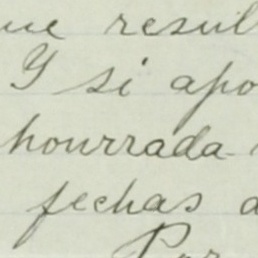 ue resul
Y si apo
hourrada
fechas a
Por